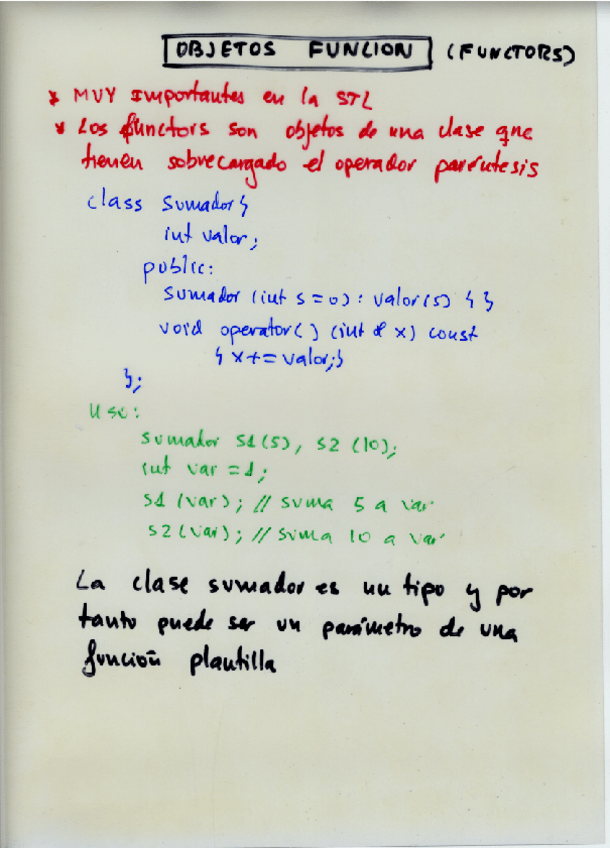 OBJETOS FUNCION (FUNCTORS)
* MUY Importantes en la STL
* Los functors son objetos de una clase que
tienen sobrecargado el operador paréntesis
class Sumador {
int valor;
public:
Sumador (int s = 0) : valor(s) { }
void operator( ) (int & x) const
{ x += valor; }
};
Uso:
Sumador S1(5), S2 (10);
int var = 1;
S1 (var); // Suma 5 a var
S2 (var); // Suma 10 a var
La clase sumador es un tipo y por
tanto puede ser un parámetro de una
función plantilla